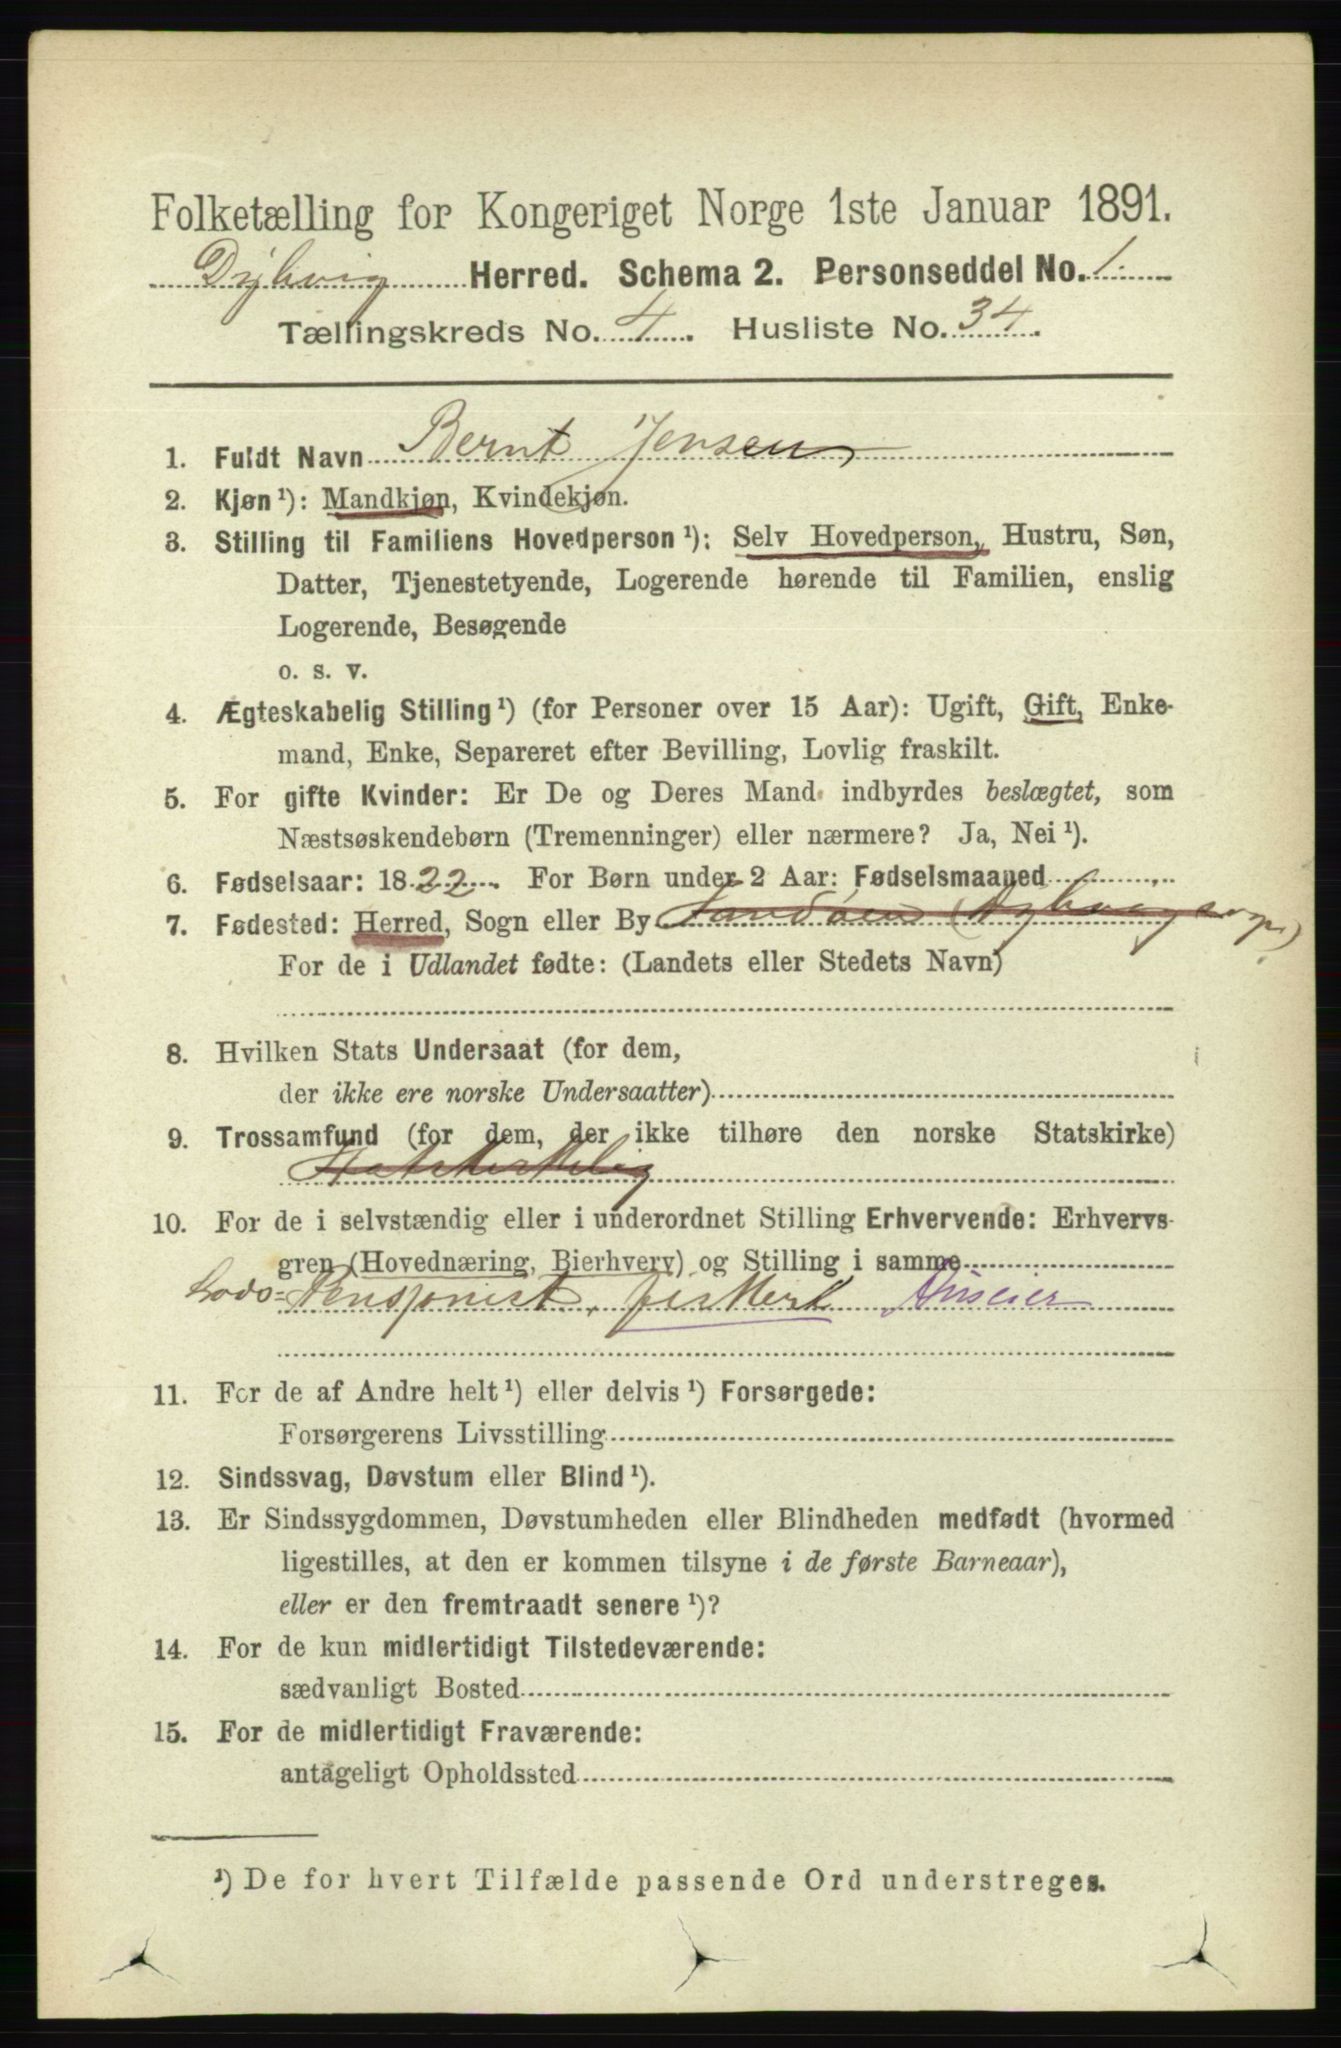 Folketælling for Kongeriget Norge 1ste Januar 1891.
Dybvig Herred. Schema 2. Personseddel No. 1.
Tællingskreds No. 4. Husliste No. 34.
1. Fuldt Navn Bernt Jensen
2. Kjøn ¹): Mandkjøn, Kvindekjøn.
3. Stilling til Familiens Hovedperson ¹): Selv Hovedperson, Hustru, Søn,
Datter, Tjenestetyende, Logerende hørende til Familien, enslig
Logerende, Besøgende
o. s. v.
4. Ægteskabelig Stilling ¹) (for Personer over 15 Aar): Ugift, Gift, Enke-
mand, Enke, Separeret efter Bevilling, Lovlig fraskilt.
5. For gifte Kvinder: Er De og Deres Mand indbyrdes beslægtet, som
Næstsøskendebørn (Tremenninger) eller nærmere? Ja, Nei ¹).
6. Fødselsaar: 1822. For Børn under 2 Aar: Fødselsmaaned
7. Fødested: Herred, Sogn eller By Sandøen (Dybvaag sogn)
For de i Udlandet fødte: (Landets eller Stedets Navn)
8. Hvilken Stats Undersaat (for dem,
der ikke ere norske Undersaatter)
9. Trossamfund (for dem, der ikke tilhøre den norske Statskirke)
Statskirkelig
10. For de i selvstændig eller i underordnet Stilling Erhvervende: Erhvervs-
gren (Hovednæring, Bierhverv) og Stilling i samme
Lods= Pensjonist, fiskeri Huseier
11. For de af Andre helt ¹) eller delvis ¹) Forsørgede:
Forsørgerens Livsstilling
12. Sindssvag, Døvstum eller Blind ¹).
13. Er Sindssygdommen, Døvstumheden eller Blindheden medfødt (hvormed
ligestilles, at den er kommen tilsyne i de første Barneaar),
eller er den fremtraadt senere ¹)?
14. For de kun midlertidigt Tilstedeværende:
sædvanligt Bosted
15. For de midlertidigt Fraværende:
antageligt Opholdssted
¹) De for hvert Tilfælde passende Ord understreges.